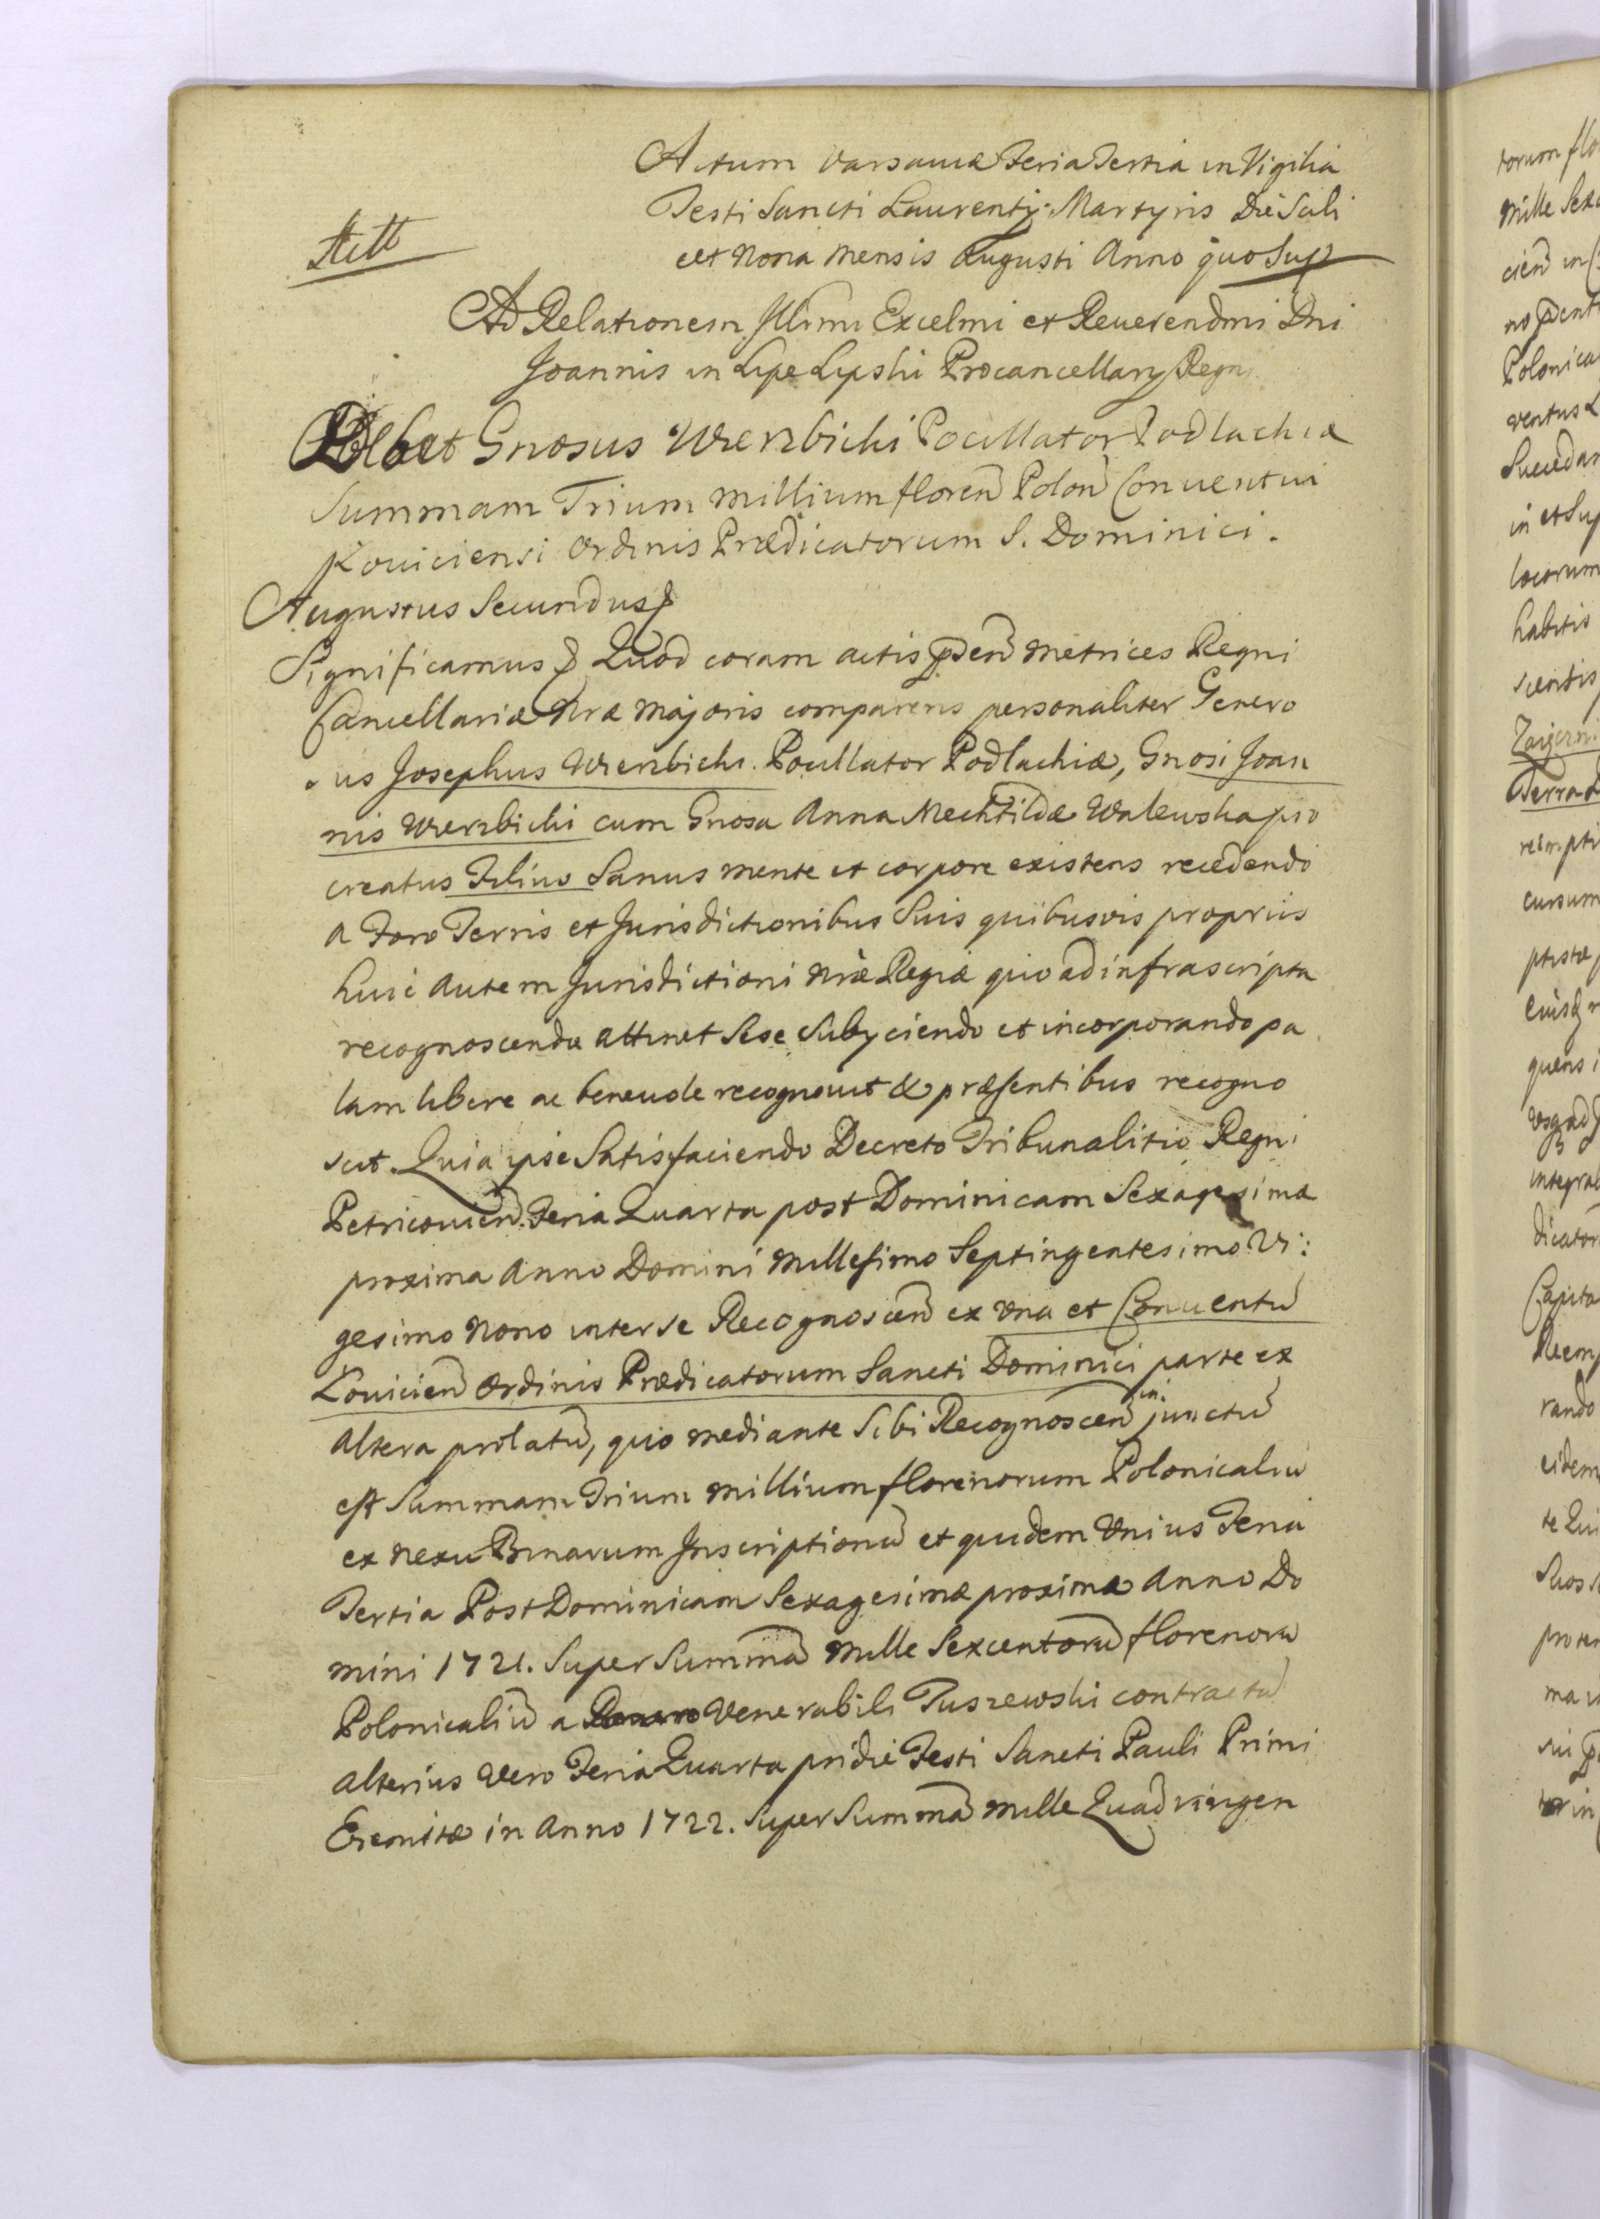 Actum Varsaviæ Feria Tertia in Vigilia
Festi Sancti Laurentij Martyris Die Scili
cet Nona Mensis Augusti Anno quo Sup
Ad Relationem Illmi Excelmi et Reverendmi Dni
Joannis in Lipe Lipski Procancellarij Regni
Gnosus Wierzbicki Pocillator Podlachiæ
Summam Trium Millium floren Polon Conventui
Loviciensi Ordinis Prædicatorum S. Dominici.
Augustus Secundus
Significamus Quod coram actis pden Metrices Regni
Cancellariæ Nræ Majoris comparens personaliter Genero
sus Josephus Wierzbicki Pocillator Podlachiæ, Gnosi Joan
nis Wierzbicki cum Gnosa Anna Mechtilde Walewska pro
creatus Filius Sanus mente et corpore existens recedendo
a Foro Terris et Jurisdictionibus Suis quibusvis proprius
huic autem Jurisdictioni Nræ Regiæ quo ad infrascripta
recognoscenda attinet Sese Subijciendo et incorporando pa
lam libere ac benevole recognovit & præsentibus recogno
scit. Quia ipse Satisfaciendo Decreto Tribunalitio Regni
Petricovien. Feria Quarta post Dominicam Sexagesimæ
proxima Anno Domini Millesimo Septingentesimo Vi:
gesimo Nono inter se Recognoscen ex una et Conventu
Lovicien Ordinis Prædicatorum Sancti Dominici parte ex
altera prolatu, quo mediante Sibi Recognoscen in junctu
est Summam Trium Millium florenorum Polonicaliu
ex nexu Binarum Inscriptionu et quidem Unius Feria
Tertia Post Dominicam Sexagesimæ proxima Anno Do
mini 1721. Super Summa Mille Sexcentoru florenoru
Polonicaliu a Venerabili Tuszewski contractu
alterius Vero Feria Quarta pridie Festi Sancti Pauli Primi
Eremitæ in Anno 1722. Super Summa Mille Quadringen